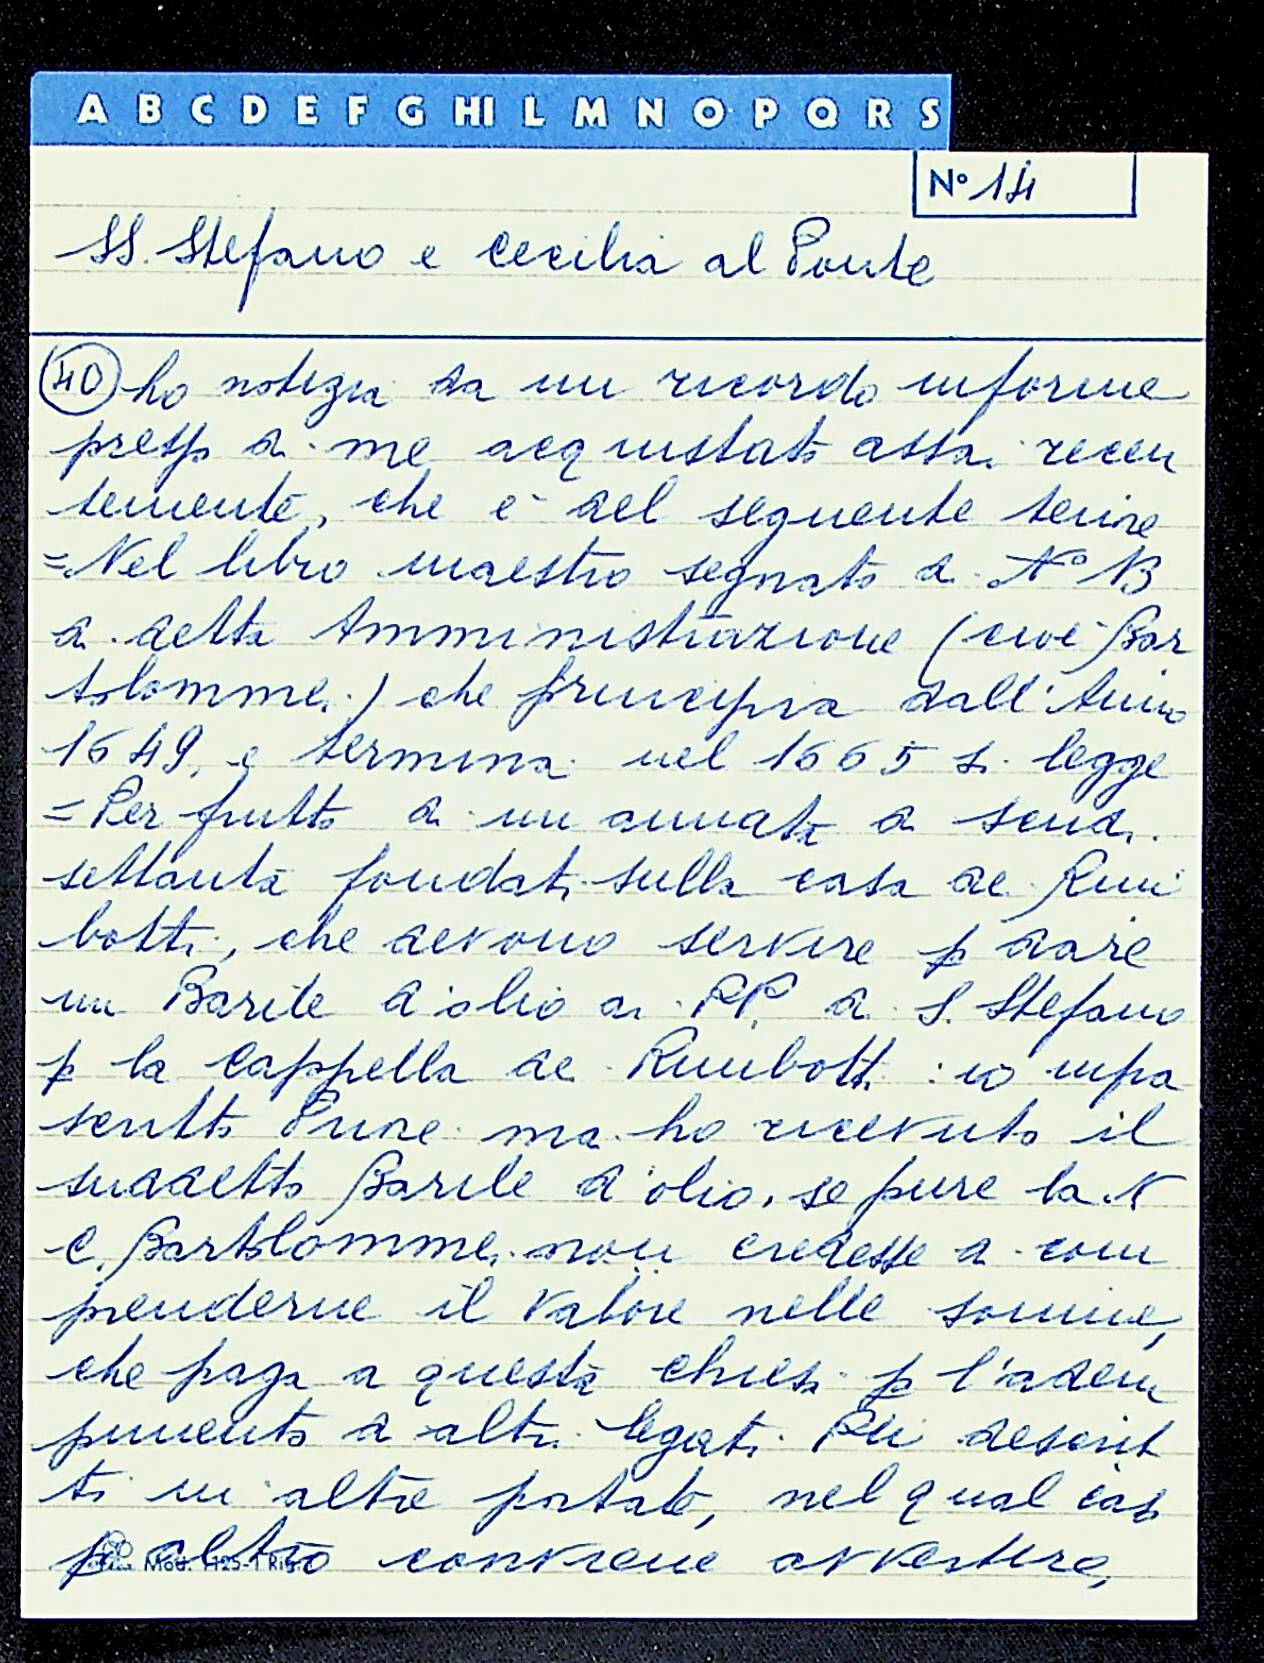 A B C D E F G HI L M N O P Q R S
N° 14
SS. Stefano e Cecilia al Ponte
40 ho notizia da un ricordo informe
presso di me acquistato assai recen
temente, che è del seguente tenore
=Nel libro maestro segnato di N° 13
di detta Amministrazione (cioè Bar
tolommei) che principia dall'Anno
1649, e termina nel 1665 si legge
=Per frutto di un annata di scudi
settanta fondati sulla casa de Rim
botti, che devono servire p dare
un Barile d'olio ai PP. di S. Stefano
p la Cappella de Rimbotti: io infra
scritto Priore mai ho ricevuto il
suddetto Barile d'olio, se pure la N
C. Bartolommei non credesse di com
prenderne il valore nelle somme,
che paga a questa chiesa p l'adem
pimento di altri legati Pii descrit
ti in altre portate, nel qual caso
p altro conviene avvertire,
Mod. 1125-1 Rig.